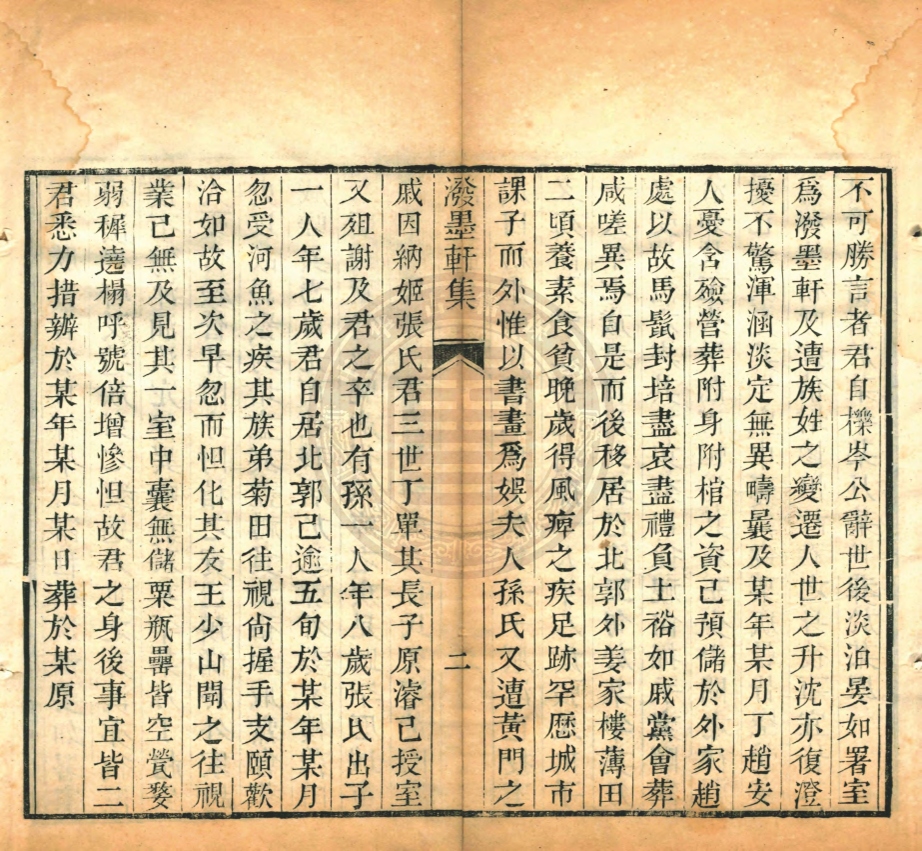 不可勝言者君自櫟岑公辭世後淡泊晏如署室
爲潑墨軒及遭族姓之變遷人世之升沈亦復澄
擾不驚渾涵淡定無異疇曩及某年某月丁趙安
人憂含殮營葬附身附棺之資己預儲於外家趙
處以故馬鬛封培盡哀盡禮負土裕如戚黨會葬
咸嗟異焉自是而後移居於北郭外姜家樓薄田
二頃養素食貧晚歲得風痺之疾足跡罕歷城市
課子而外惟以書畫爲娯夫人孫氏又遭黃門之
潑墨軒集 二
戚因納姬張氏君三世丁單其長子原濬己授室
又殂謝及君之卒也有孫一人年八歲張氏出子
一人年七歲君自居北郭己逾五旬於某年某月
忽受河魚之疾其族弟菊田往視尙握手支頤歡
洽如故至次早忽而怛化其友王少山聞之往視
業己無及見其一室中囊無儲粟瓶罍皆空煢嫠
弱穉遶榻呼號倍增慘怛故君之身後事宜皆二
君悉力措辦於某年某月某日葬於某原